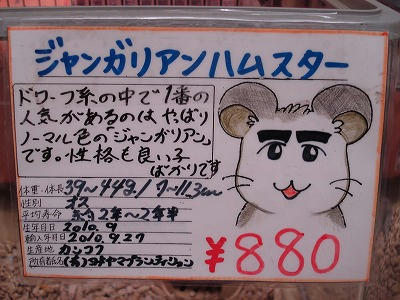 ジャンガリアンハムスター
ドワーフ系の中で1番の
人気があるのは やっぱり
ノーマル色の「ジャンガリアン」
です。性格も良い子
ばかりです
体重・体長 39〜44g/7〜11.3cm
性別 オス
平均寿命 約2年〜2年半
生年月日 2010.9
輸入年月日 2010.9.27
生産地 カンコク
所有者氏名
¥880